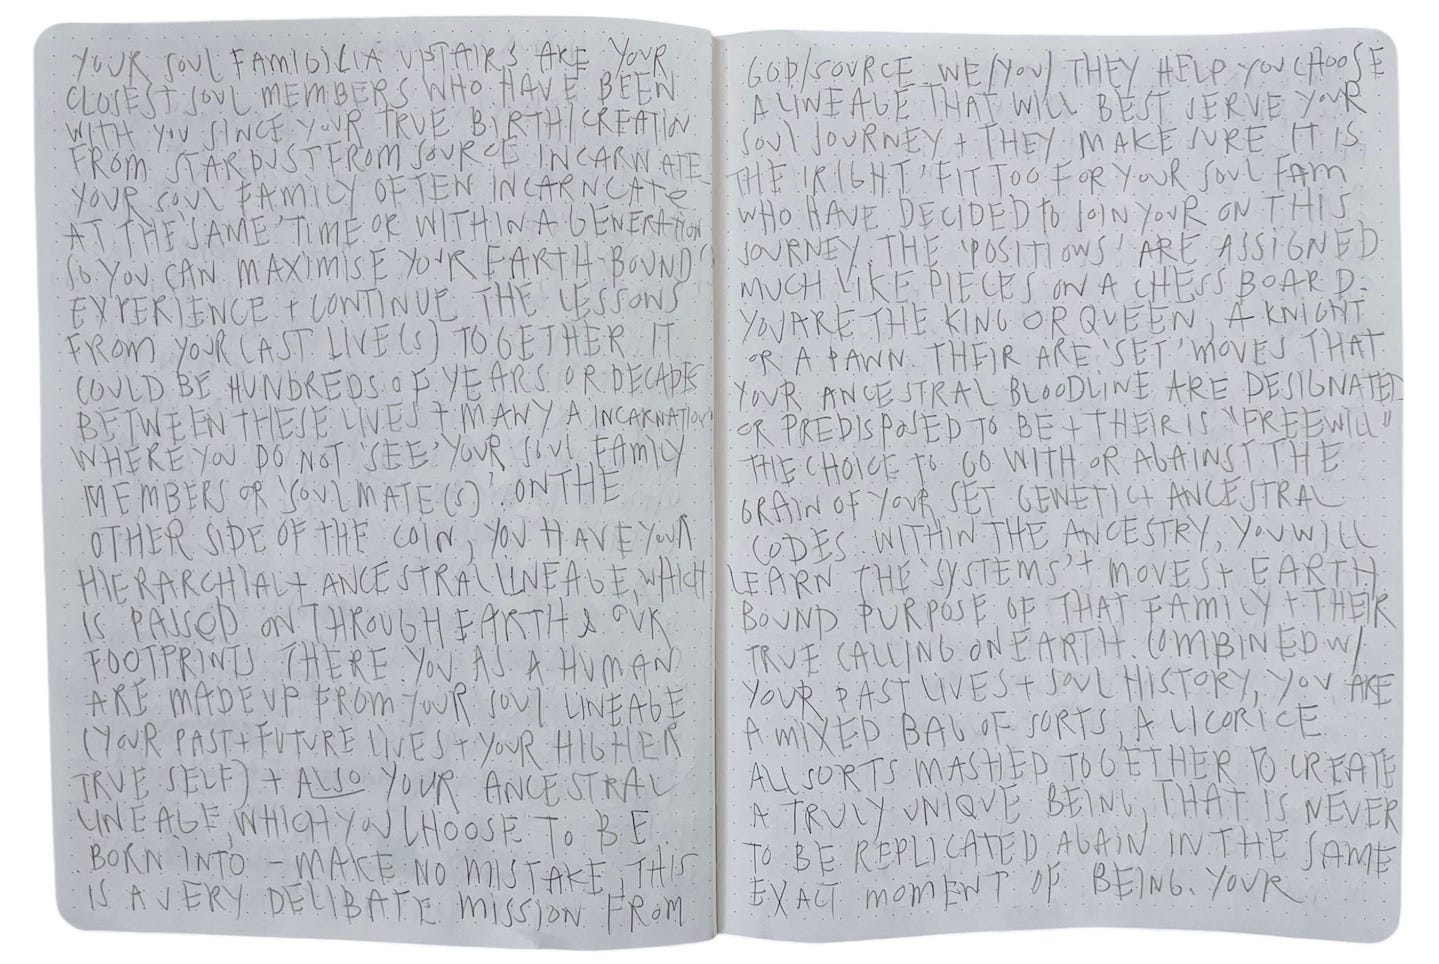 YOUR SOUL FAMI(G)LIA UPSTAIRS ARE YOUR
CLOSEST SOUL MEMBERS WHO HAVE BEEN
WITH YOU SINCE YOUR TRUE BIRTH/CREATION
FROM STARDUST FROM SOURCE INCARNATE
YOUR SOUL FAMILY OFTEN INCARNCATE
AT THE SAME TIME OR WITHIN A GENERATION
SO YOU CAN MAXIMISE YOUR EARTH-BOUND
EXPERIENCE + CONTINUE THE LESSONS
FROM YOUR LAST LIVE(S) TOGETHER. IT
COULD BE HUNDREDS OF YEARS OR DECADES
BETWEEN THESE LIVES + MANY A INCARNATION
WHERE YOU DO NOT 'SEE' YOUR SOUL FAMILY
MEMBERS OR 'SOUL MATE(S)'. ON THE
OTHER SIDE OF THE COIN, YOU HAVE YOUR
HIERARCHIAL + ANCESTRAL LINEAGE, WHICH
IS PASSED ON THROUGH EARTH & OUR
FOOTPRINTS THERE. YOU AS A HUMAN
ARE MADE UP FROM YOUR SOUL LINEAGE
(YOUR PAST + FUTURE LIVES + YOUR HIGHER
TRUE SELF) + ALSO YOUR ANCESTRAL
LINEAGE, WHICH YOU CHOOSE TO BE
BORN INTO - MAKE NO MISTAKE, THIS
IS A VERY DELIBATE MISSION FROM
GOD/SOURCE. WE/YOU/THEY HELP YOU CHOOSE
A LINEAGE THAT WILL BEST SERVE YOUR
SOUL JOURNEY + THEY MAKE SURE IT IS
THE 'RIGHT' FIT TOO FOR YOUR SOUL FAM
WHO HAVE DECIDED TO JOIN YOUR ON THIS
JOURNEY. THE 'POSITIONS' ARE ASSIGNED
MUCH LIKE PIECES ON A CHESS BOARD.
YOU ARE THE KING OR QUEEN, A KNIGHT
OR A PAWN. THEIR ARE 'SET' MOVES THAT
YOUR ANCESTRAL BLOODLINE ARE DESIGNATED
OR PREDISPOSED TO BE + THEIR IS "FREEWILL"
THE CHOICE TO GO WITH OR AGAINST THE
GRAIN OF YOUR SET GENETIC + ANCESTRAL
CODES. WITHIN THE ANCESTRY, YOU WILL
LEARN THE 'SYSTEMS' + MOVES + EARTH
BOUND PURPOSE OF THAT FAMILY + THEIR
TRUE CALLING ON EARTH COMBINED W/
YOUR PAST LIVES + SOUL HISTORY, YOU ARE
A MIXED BAG OF SORTS, A LICORICE
ALLSORTS MASHED TOGETHER TO CREATE
A TRULY UNIQUE BEING, THAT IS NEVER
TO BE REPLICATED AGAIN IN THE SAME
EXACT MOMENT OF BEING. YOUR